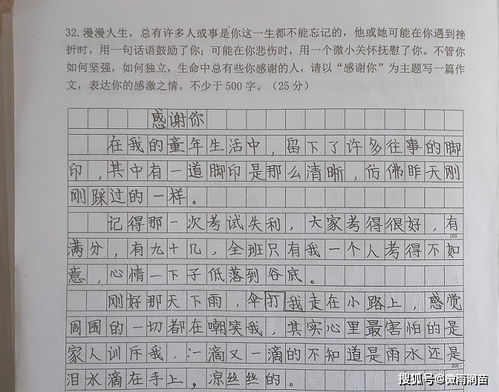 32. 漫漫人生，总有许多人或事是你这一生都不能忘记的，他或她可能在你遇到挫
折时，用一句话语鼓励了你；可能在你悲伤时，用一个微小关怀抚慰了你。不管你
如何坚强，如何独立，生命中总有些你感谢的人，请以“感谢你”为主题写一篇作
文，表达你的感激之情。不少于 500 字。（25 分）
感谢你
在我的童年生活中，留下了许多往事的脚
印，其中有一道脚印是那么清晰，仿佛昨天刚
刚踩过的一样。
记得那一次考试失利，大家考得很好，有
100
满分，有九十几，全班只有我一个人考得不如
意，心情一下子低落到谷底。
刚好那天下雨，伞打我走在小路上，感觉
周围的一切都在嘲笑我，其实心里最害怕的是
家人训斥我，一滴又一滴的不知道是雨水还是
200
泪水滴在手上，凉丝丝的。
搜狐号@微雨润苗